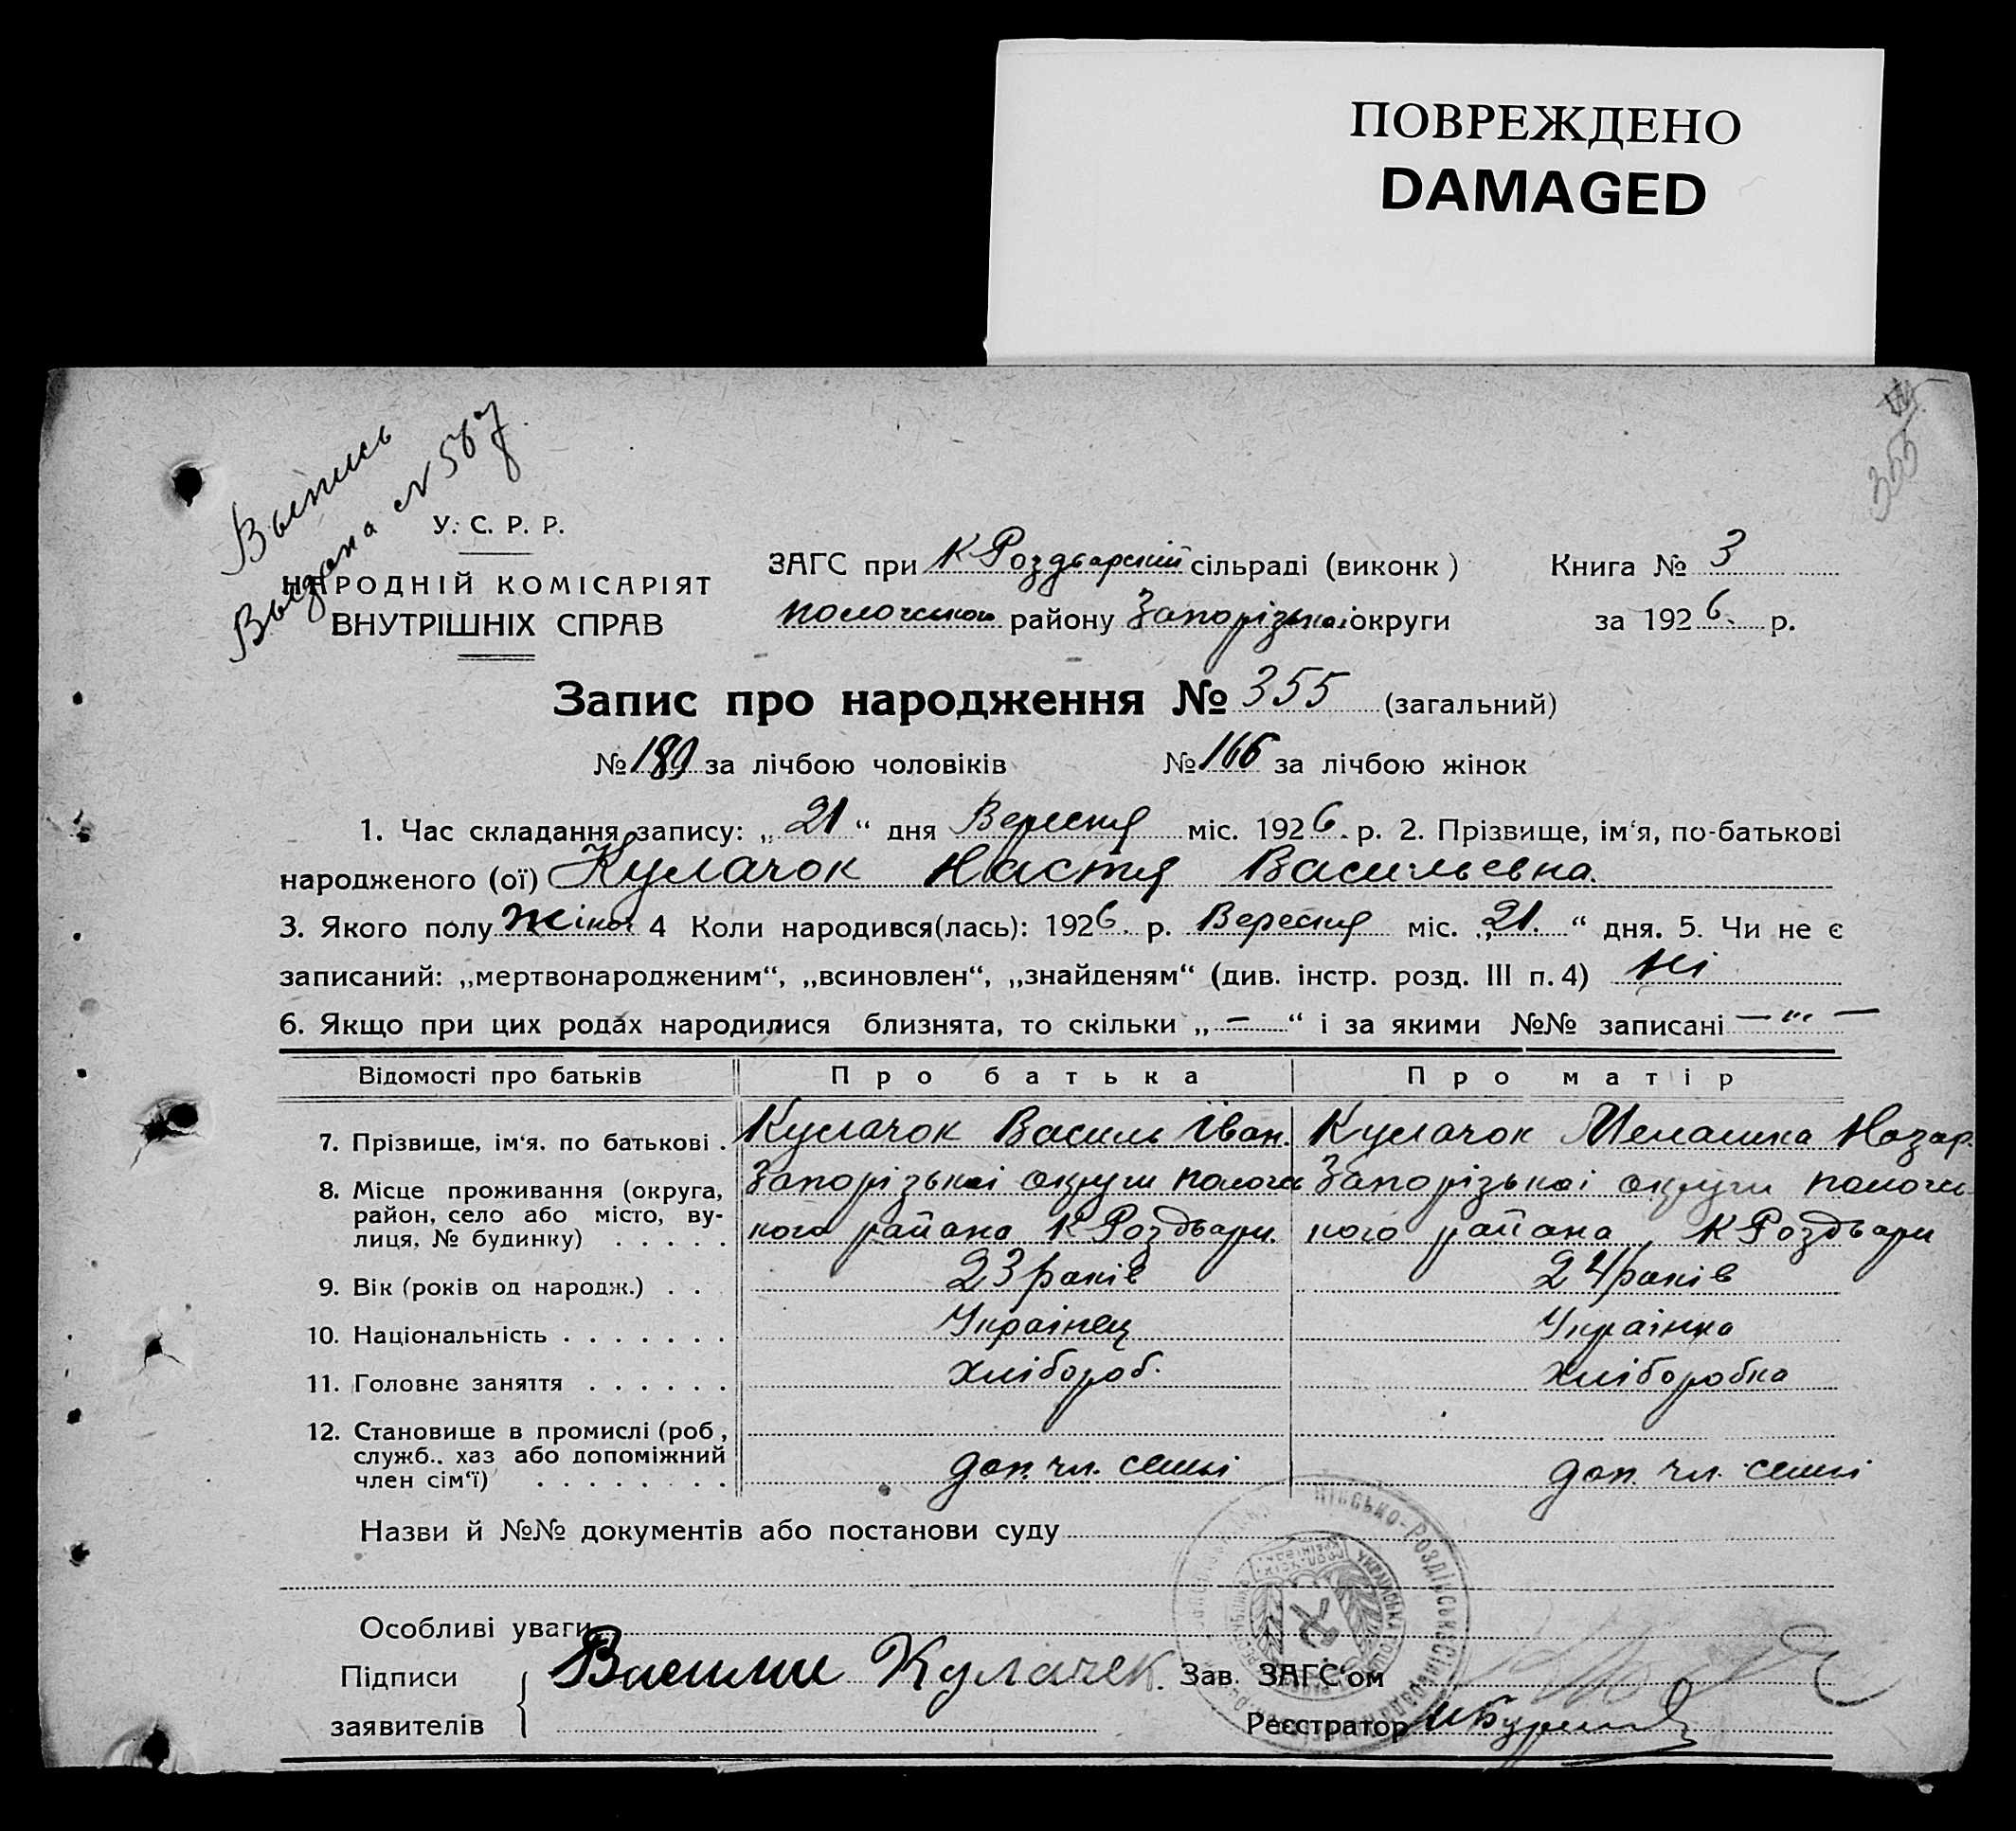 ПОВРЕЖДЕНО
DAMAGED
355
Выпись
Выдана N 587
У. С. Р. Р.
НАРОДНІЙ КОМІСАРІЯТ
ВНУТРІШНІХ СПРАВ
ЗАГС при К Роздварский сільраді (виконк)
пологського району Запорізької округи
Книга № 3
за 1926. р.
Запис про народження № 355 (загальний)
№ 189 за лічбою чоловіків № 166 за лічбою жінок
1. Час складання запису: „21“ дня Вересня міс. 1926. р. 2. Прізвище, ім‘я, по-батькові
народженого (ої) Кулачок Настя Васильевна.
3. Якого полу жіноч 4 Коли народився(лась): 1926. р. Вересня міс. „21.“ дня. 5. Чи не є
записаний: „мертвонародженим“, „всиновлен“, „знайденям“ (див. інстр. розд. III п. 4) Ні
6. Якщо при цих родах народилися близнята, то скільки „—“ і за якими №№ записані — „ —
Відомості про батьків Про батька Про матір
7. Прізвище, ім‘я. по батькові . Кулачок Василь Іван. Кулачок Мелашка Назар.
8. Місце проживання (округа, Запорізької округи пологс Запорізької округи пологс
район, село або місто, ву-
лиця, № будинку) . . . . . кого района К Роздвари. кого района, К Роздвари
9. Вік (років од народж.) . . 23 років 24 років
10. Національність . . . . . . . Украінец Украінка
11. Головне заняття . . . . . . хлібороб. хліборобка
12. Становище в промислі (роб,
служб., хаз або допоміжний
член сім‘ї) . . . . . . . . доп. чл. семьі доп. чл. семьі
Назви й №№ документів або постанови суду
Особливі уваги
Підписи Василий Кулачек. Зав. ЗАГС‘ом
заявителів Реєстратор